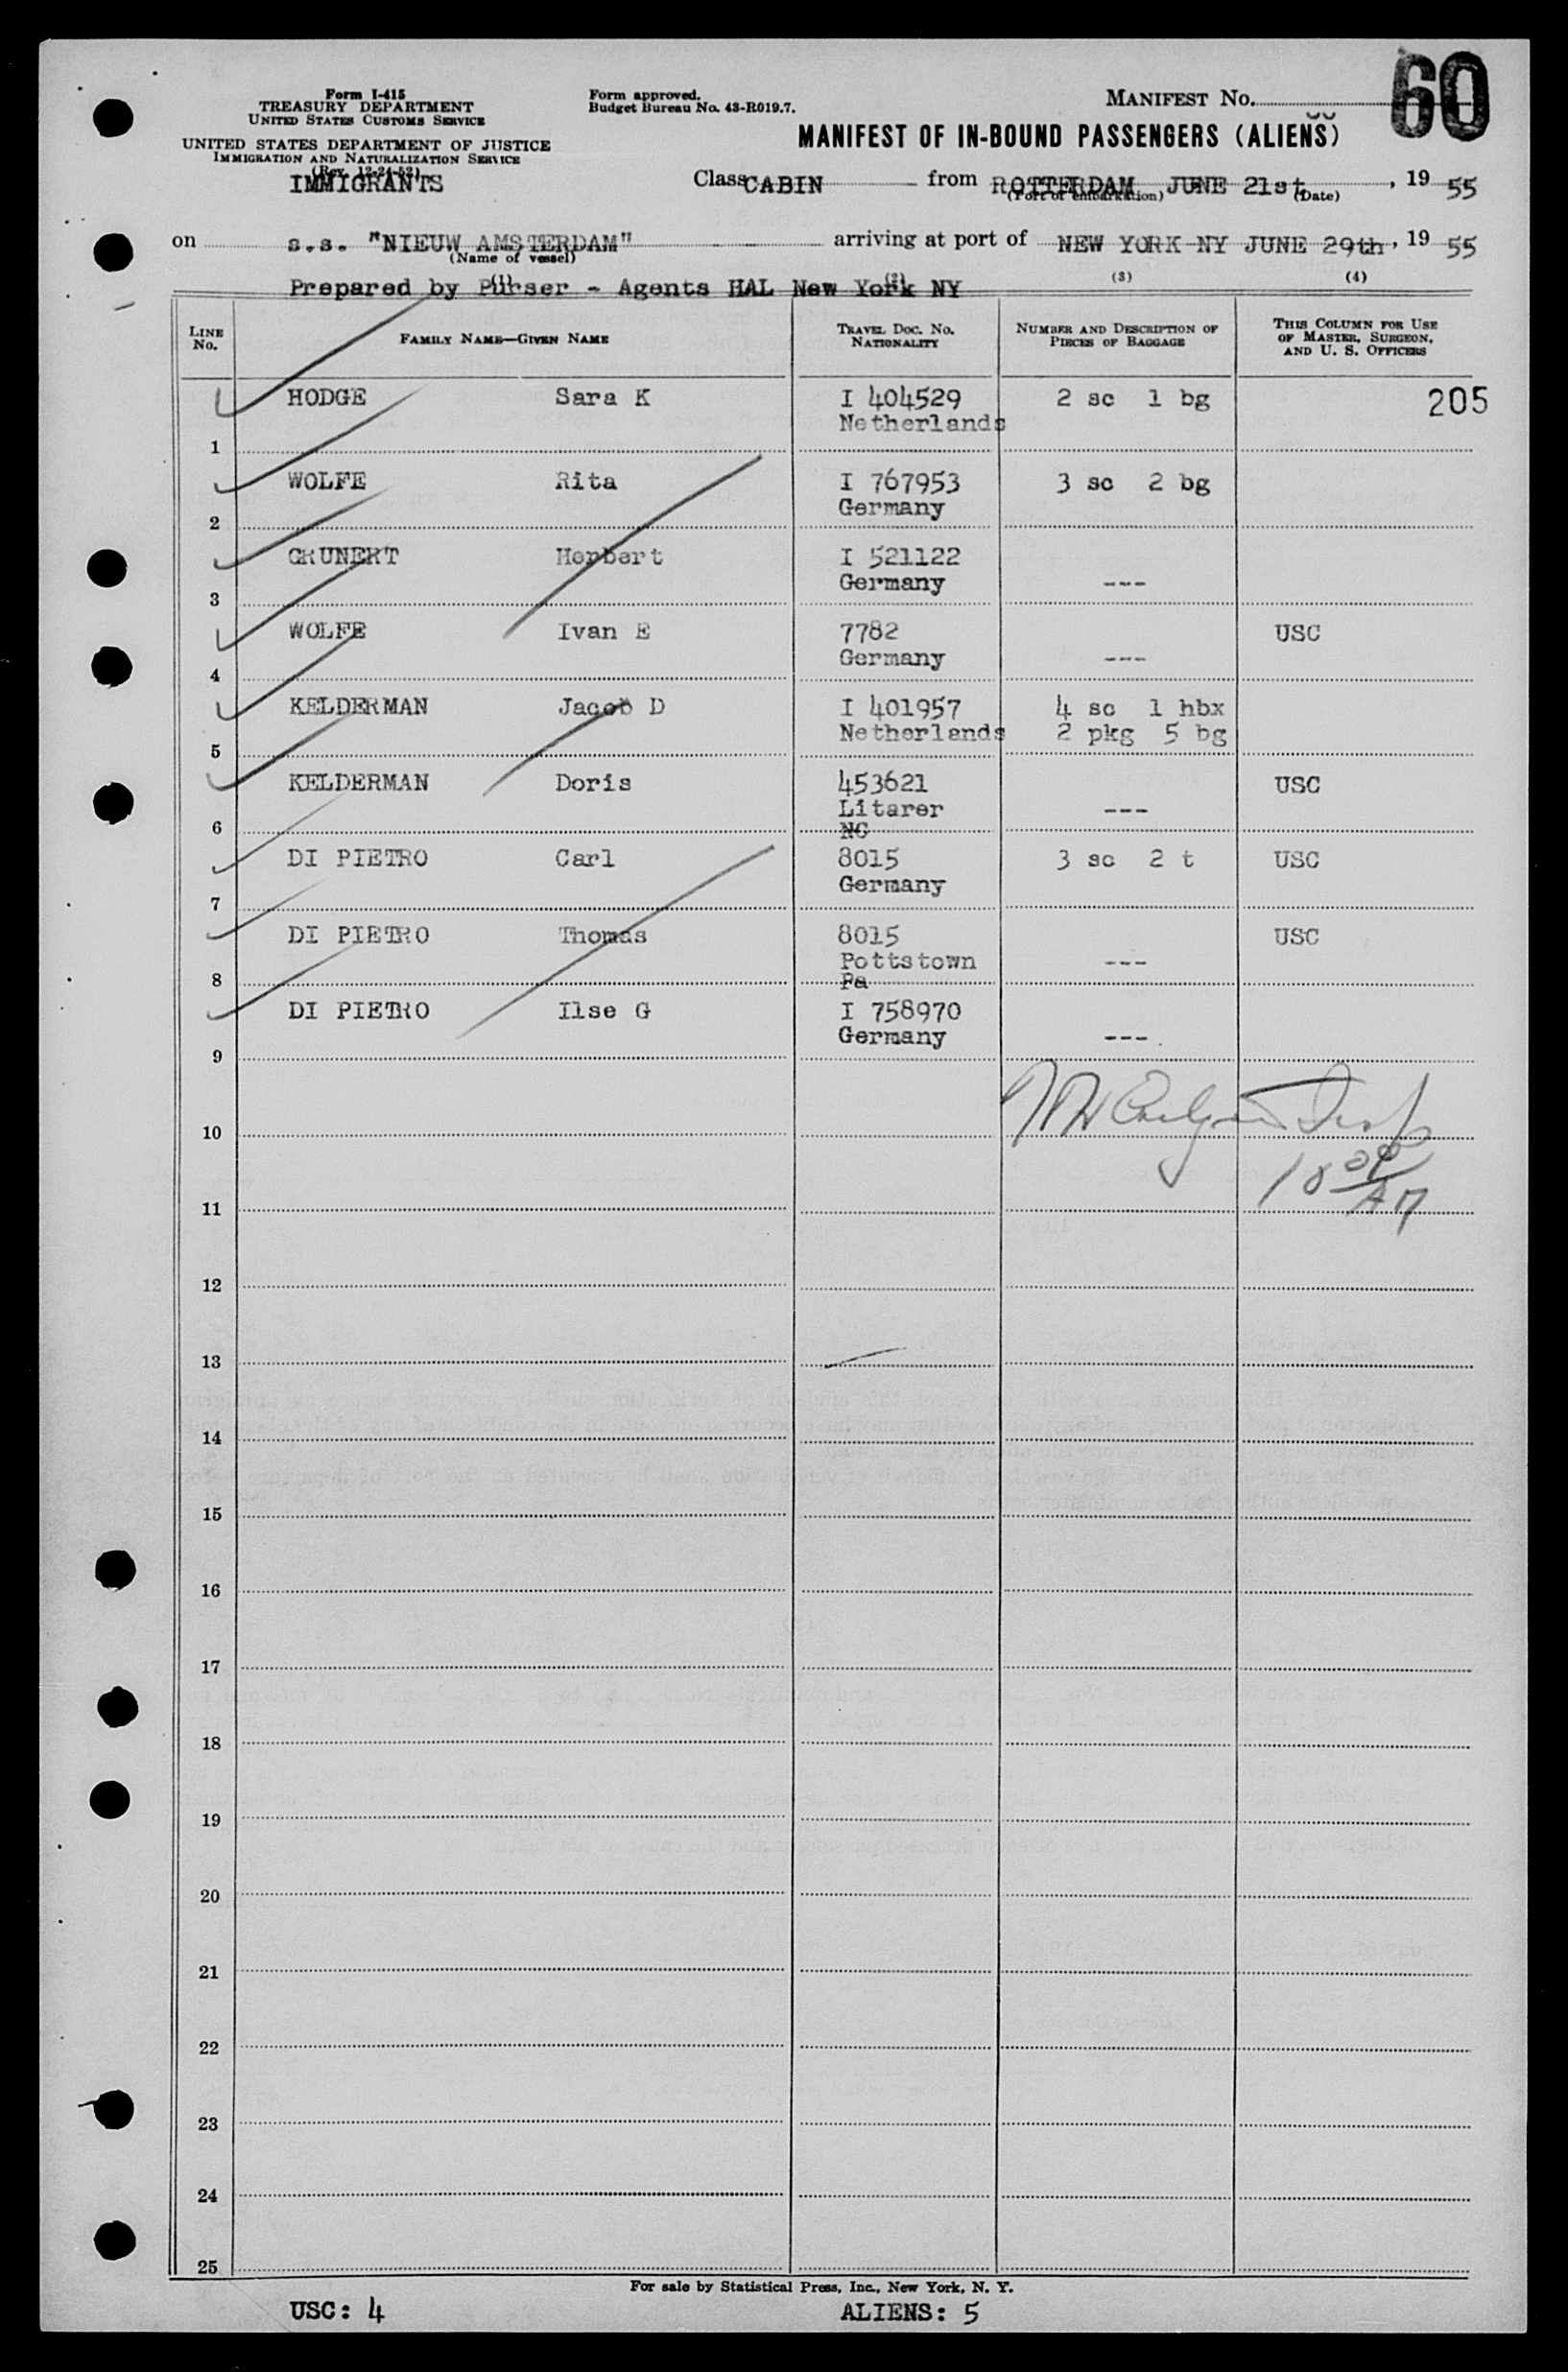 Form I-415
TREASURY DEPARTMENT
UNITED STATES CUSTOMS SERVICE
UNITED STATES DEPARTMENT OF JUSTICE
IMMIGRATION AND NATURALIZATION SERVICE
(Rev. 12-24-52)
IMMIGRANTS
Form approved.
Budget Bureau No. 43-R019.7.
MANIFEST No. 60
MANIFEST OF IN-BOUND PASSENGERS (ALIENS)
Class CABIN from ROTTERDAM JUNE 21st, 19 55
(Port of embarkation) (Date)
on s.s. "NIEUW AMSTERDAM" arriving at port of NEW YORK NY JUNE 29th, 19 55
(Name of vessel)
(1) (2) (3) (4)
Prepared by Purser - Agents HAL New York NY
LINE No. FAMILY NAME—GIVEN NAME TRAVEL DOC. No. NATIONALITY NUMBER AND DESCRIPTION OF PIECES OF BAGGAGE THIS COLUMN FOR USE OF MASTER, SURGEON, AND U. S. OFFICERS
HODGE Sara K I 404529 2 sc 1 bg 205
Netherlands
1
WOLFE Rita I 767953 3 sc 2 bg
Germany
2
GRUNERT Herbert I 521122
Germany ---
3
WOLFE Ivan E 7782 USC
Germany ---
4
KELDERMAN Jacob D I 401957 4 sc 1 hbx
Netherlands 2 pkg 5 bg
5
KELDERMAN Doris 453621 USC
Litarer ---
6 NC
DI PIETRO Carl 8015 3 sc 2 t USC
Germany
7
DI PIETRO Thomas 8015 USC
Pottstown ---
8 Pa
DI PIETRO Ilse G I 758970
Germany ---
9
10
10 00 AM
11
12
13
14
15
16
17
18
19
20
21
22
23
24
25
For sale by Statistical Press, Inc., New York, N. Y.
USC: 4 ALIENS: 5